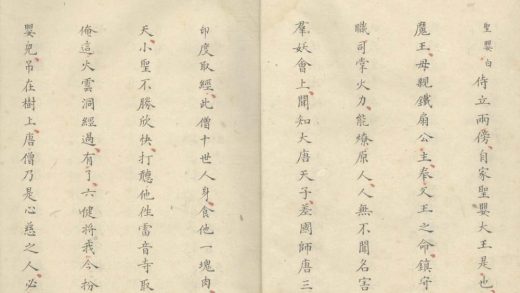 聖嬰白侍立兩傍自家聖嬰大王是也
魔王母親鐵扇公主奉父王之命鎮守
職司掌火力能燎原人人無不聞名害
羣妖會上聞知大唐天子差國師唐三
印度取經此僧十世人身食他一塊肉
天小聖不勝欣快打聽他徃雷音寺取
俺這火雲洞經過有了六健將我今扮
嬰兒吊在樹上唐僧乃是心慈之人必